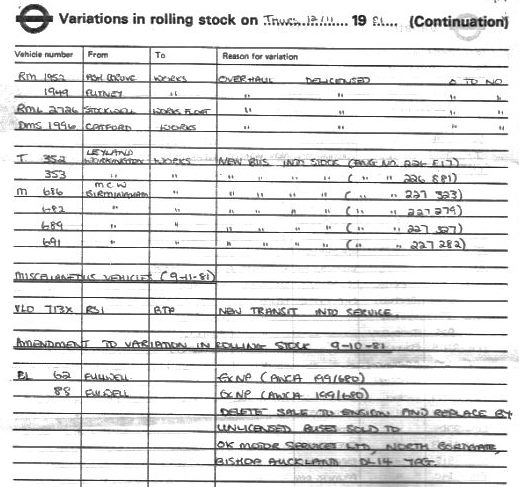 Variations in rolling stock on Thurs 12/11 19 81 (Continuation)
Vehicle number From To Reason for variation
RM 1952 ASH GROVE WORKS OVERHAUL DELICENSED O TO NO
1949 PUTNEY " " " " "
RML 2726 STOCKWELL WORKS FLOAT " " " "
DMS 1996 CATFORD WORKS " " " "
LEYLAND
T 352 WORKINGTON WORKS NEW BUS INTO STOCK (ENG NO. 226 817)
353 " " " " " " ( " " 226 881)
MCW
M 686 BIRMINGHAM " " " " " ( " " 227 323)
682 " " " " " " ( " " 227 279)
689 " " " " " " ( " " 227 327)
691 " " " " " " ( " " 227 282)
MISCELLANEOUS VEHICLES (9-11-81)
VLD 713X RSI BTP NEW TRANSIT INTO SERVICE
AMENDMENT TO VARIATION IN ROLLING STOCK 9-10-81
BL 62 FULWELL EX NP (AWCA 199/680)
88 FULWELL EX NP (AWCA 199/680)
DELETE SALE TO ENSIGN AND REPLACE BY
UNLICENSED BUSES SOLD TO
OK MOTOR SERVICES LTD, NORTH BONDGATE,
BISHOP AUCKLAND DL14 7PG.